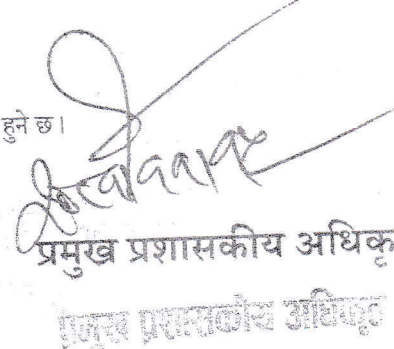 हुने छ।
प्रमुख प्रशासकीय अधिकृ
प्रमुख प्रशासकीय अधिकृत